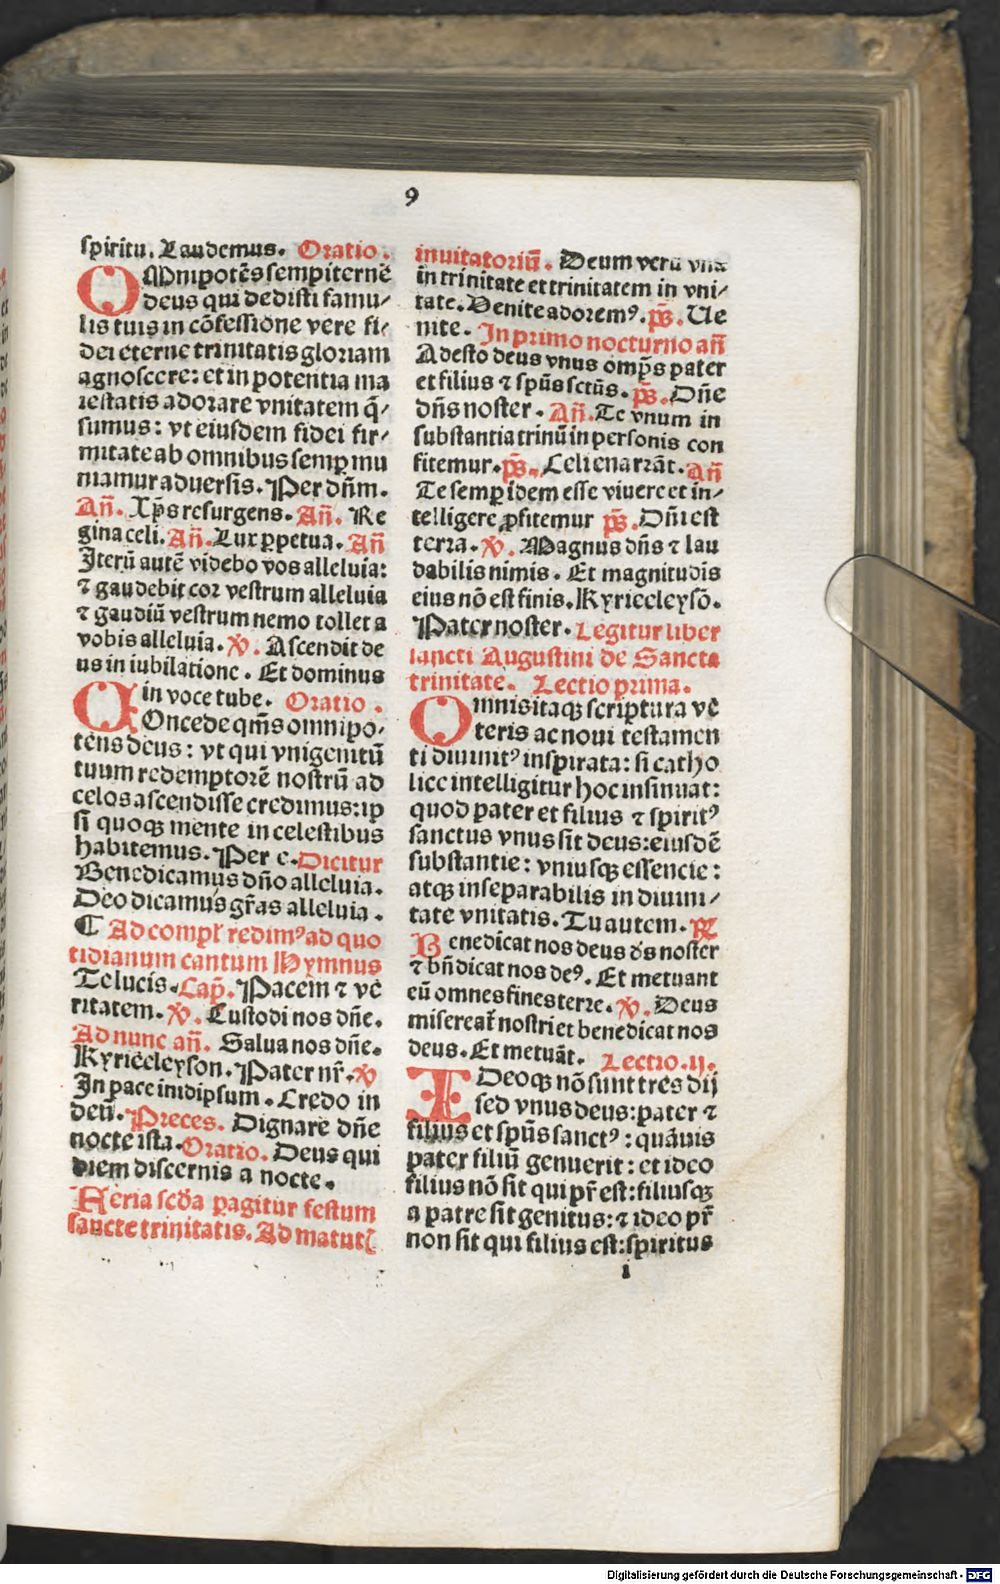 9
spiritu. Laudemus. Oratio.
OMnipotẽs sempiternẽ
deus qui dedisti famu/
lis tuis in cõfessione vere fi/
dei eterne trinitatis gloriam
agnoscere: et in potentia ma
iestatis adorare vnitatem q̃/
sumus: vt eiusdem fidei fir/
mitate ab omnibus semꝑ mu
niamur aduersis. Per dñm.
Añ. Xp̃s resurgens. Añ. Re
gina celi. Añ. Lux ꝑpetua. Añ
Iterũ autẽ videbo vos alleluia:
⁊ gaudebit cor vestrum alleluia
⁊ gaudiũ vestrum nemo tollet a
vobis alleluia. ꝟ. Ascendit de
us in iubilatione. Et dominus
in voce tube. Oratio.
COncede qm̃s omnipo/
tens deus: vt qui vnigenitũ
tuum redemptorẽ nostrũ ad
celos ascendisse credimus: ip
si quoqꝫ mente in celestibus
habitemus. Per e. Dicitur
Benedicamus dño alleluia.
Deo dicamus gr̃as alleluia.
¶ Ad compl̃ redimꝰ ad quo
tidianum cantum Hymnus
Te lucis. Cap̃. Pacem ⁊ vẽ
ritatem. ꝟ. Custodi nos dñe.
Ad nunc añ. Salua nos dñe.
Kyrieeleyson. Pater nr̃. ꝟ
In pace in idipsum. Credo in
deũ. Preces. Dignare dñe
nocte ista. Oratio. Deus qui
diem discernis a nocte.
Feria scḋa ꝑagitur festum
sancte trinitatis. Ad matuti
inuitatoriũ. Deum verũ vnũ
in trinitate et trinitatem in vni/
tate. Venite adoremꝰ. p̃s. Ue
nite. In primo nocturno añ
Adesto deus vnus omp̃s pater
et filius ⁊ sp̃us sctũs. p̃s. Dñe
dñs noster. Añ. Te vnum in
substantia trinũ in personis con
fitemur. p̃s. Celi enarrãt. Añ
Te semꝑ idem esse viuere et in/
telligere ꝓfitemur p̃s. Dñi est
terra. ꝟ. Magnus dñs ⁊ lau
dabilis nimis. Et magnitudĩs
eius nõ est finis. Kyrieeleysõ.
Pater noster. Legitur liber
sancti Augustini de Sancta
trinitate. Lectio prima.
Omnis itaqꝫ scriptura vẽ
teris ac noui testamen
ti diuinitꝰ inspirata: si catho
lice intelligitur hoc insinuat:
quod pater et filius ⁊ spiritꝰ
sanctus vnus sit deus: eiusdẽ
substantie: vniusqꝫ essencie:
atqꝫ inseparabilis in diuini/
tate vnitatis. Tu autem. ℟
Benedicat nos deus ds̃ noster
⁊ bñdicat nos deꝰ. Et metuant
eũ omnes fines terre. ꝟ. Deus
misereat̃ nostri et benedicat nos
deus. Et metuãt. Lectio .ij.
IDeoqꝫ nõ sunt tres dij
sed vnus deus: pater ⁊
filius et sp̃us sanctꝰ: quãuis
pater filiũ genuerit: et ideo
filius nõ sit qui pr̃ est: filiusqꝫ
a patre sit genitus: ⁊ ideo pr̃
non sit qui filius est: spiritus
i
Digitalisierung gefördert durch die Deutsche Forschungsgemeinschaft - DFG